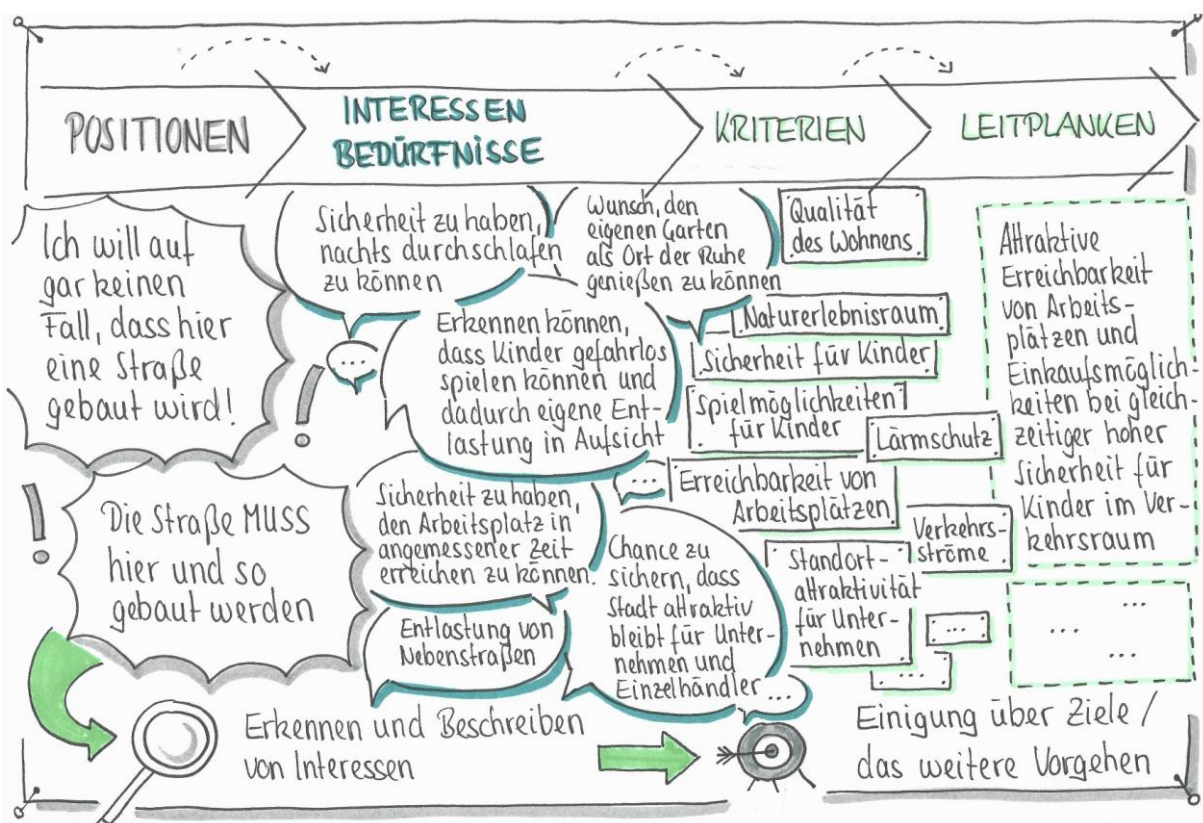 POSITIONEN
INTERESSEN
BEDÜRFNISSE
KRITERIEN
LEITPLANKEN
Ich will auf
gar keinen
Fall, dass hier
eine Straße
gebaut wird!
!
Die Straße MUSS
hier und so
gebaut werden
!
Sicherheit zu haben,
nachts durchschlafen
zu können
...
Wunsch, den
eigenen Garten
als Ort der Ruhe
genießen zu können
Erkennen können,
dass Kinder gefahrlos
spielen können und
dadurch eigene Ent-
lastung in Aufsicht
Sicherheit zu haben,
den Arbeitsplatz in
angemessener Zeit
erreichen zu können.
...
Entlastung von
Nebenstraßen
Chance zu
sichern, dass
Stadt attraktiv
bleibt für Unter-
nehmen und
Einzelhändler
...
Qualität
des Wohnens
Naturerlebnisraum
Sicherheit für Kinder
Spielmöglichkeiten
für Kinder
Lärmschutz
Erreichbarkeit von
Arbeitsplätzen
Verkehrs-
ströme
Standort-
attraktivität
für Unter-
nehmen
...
....
Attraktive
Erreichbarkeit
von Arbeits-
plätzen und
Einkaufsmöglich-
keiten bei gleich-
zeitiger hoher
Sicherheit für
Kinder im Ver-
kehrsraum
...
...
...
Erkennen und Beschreiben
von Interessen
Einigung über Ziele /
das weitere Vorgehen